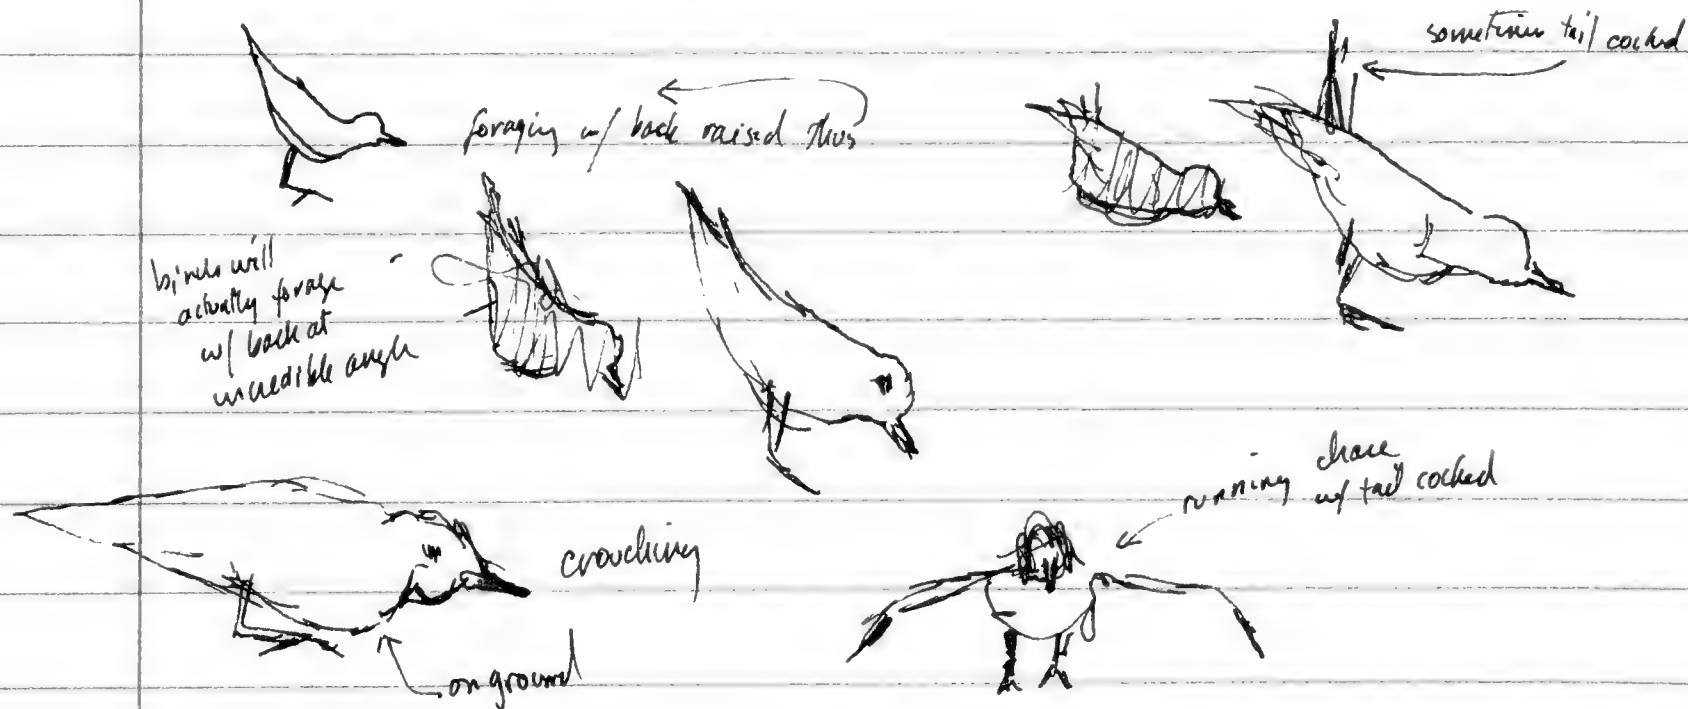 sometimes tail cocked
foraging w/ back raised thus
birds will
actually forage
w/ back at
incredible angle
chase
running w/ tail cocked
crouching
on ground